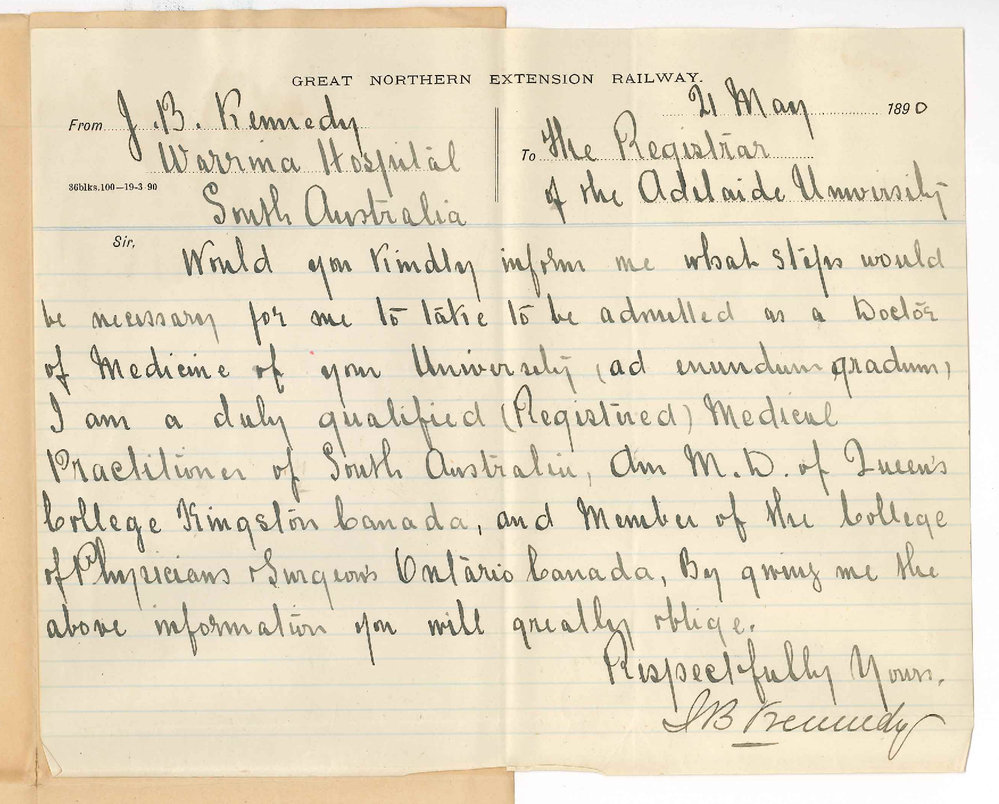 GREAT NORTHERN EXTENSION RAILWAY.
21 May 1890
From J. B. Kennedy
Warrina Hospital
36blks.100—19-3-90
South Australia
To The Registrar
of the Adelaide University
Sir,
Would you Kindly inform me what steps would
be necessary for me to take to be admitted as a Doctor
of Medicine of your University (ad eundum gradum)
I am a duly qualified (Registered) Medical
Practitioner of South Australia, Am M.D. of Queen's
College Kingston Canada, and Member of the College
of Physicians & Surgeons Ontario Canada, By giving me the
above information you will greatly oblige.
Respectfully Yours,
J B Kennedy